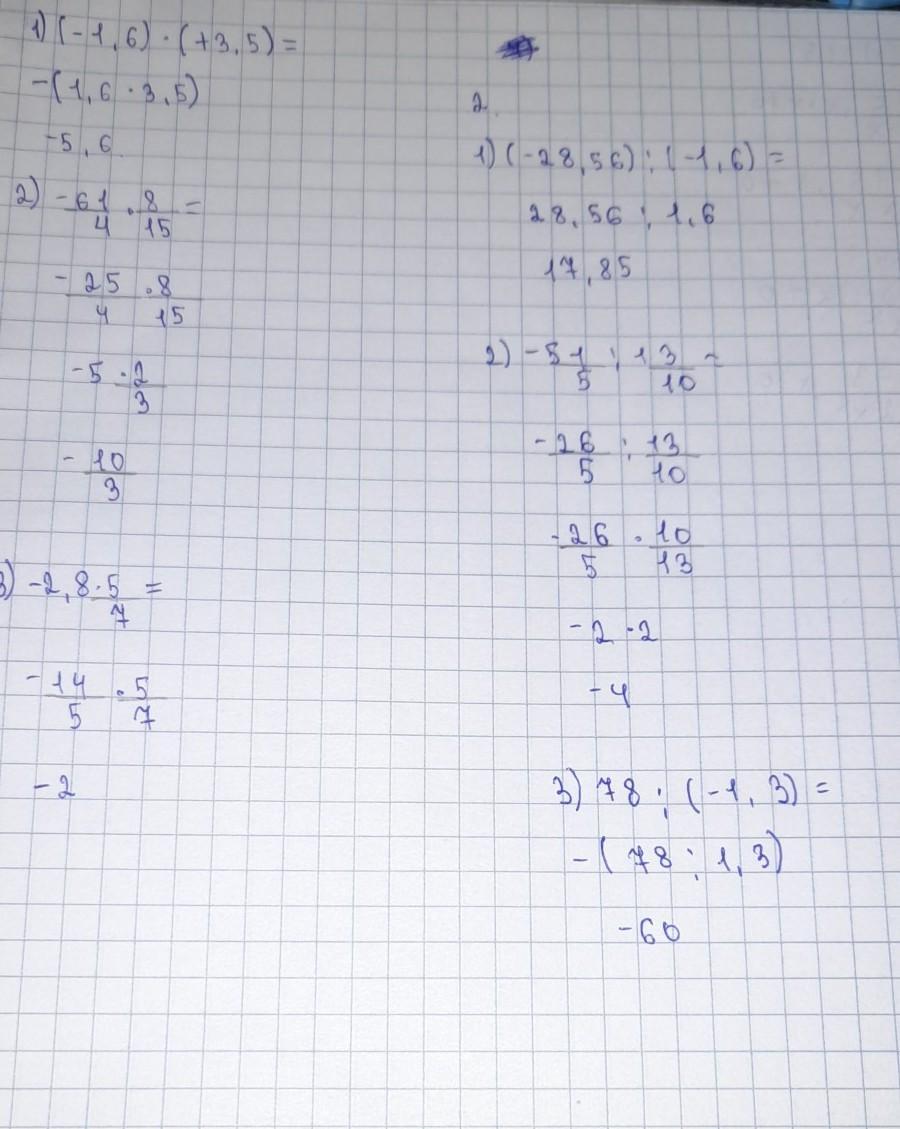 1) (-1,6) · (+3,5) =
-(1,6 · 3,5)
-5,6
2) -6 1/4 · 8/15 =
-25/4 · 8/15
-5 · 2/3
-10/3
3) -2,8 · 5/7 =
-14/5 · 5/7
-2
2.
1) (-28,56) : (-1,6) =
28,56 : 1,6
17,85
2) -5 1/5 : 1 3/10 =
-26/5 : 13/10
-26/5 · 10/13
-2 · 2
-4
3) 78 : (-1,3) =
-(78 : 1,3)
-60